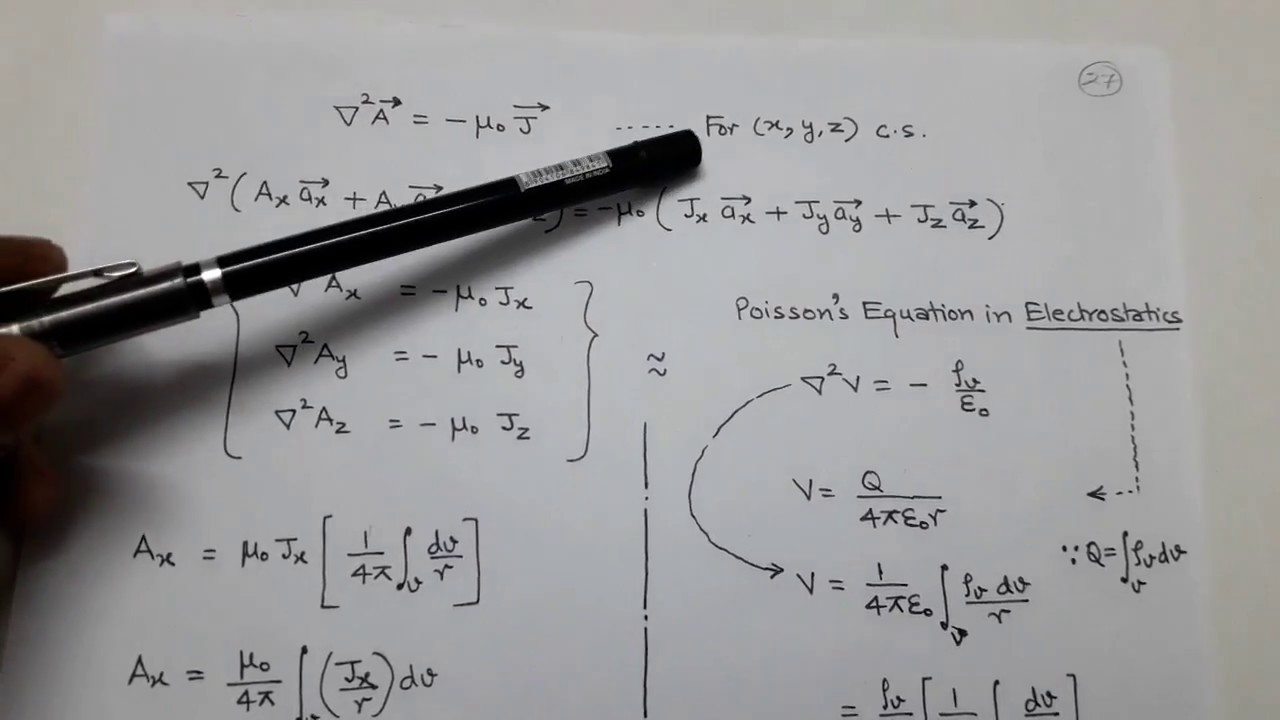 27
∇²A⃗ = -μ₀ J⃗ ----- For (x, y, z) c.s.
∇²(Aₓ a⃗ₓ + ) = -μ₀ (Jₓ a⃗ₓ + J_y a⃗_y + J_z a⃗_z)
Aₓ = -μ₀ Jₓ
∇²A_y = - μ₀ J_y
∇²A_z = - μ₀ J_z
≈
Poisson's Equation in Electrostatics
∇²V = - ρᵥ/ε₀
V = Q/4πε₀r
∵ Q = ∫ᵥ ρᵥ dv
V = 1/4πε₀ ∫ᵥ ρᵥ dv/r
Aₓ = μ₀ Jₓ [1/4π ∫ᵥ dv/r]
Aₓ = μ₀/4π ∫ᵥ (Jₓ/r) dv
= ρᵥ [1 ∫ dv]
MADE IN INDIA